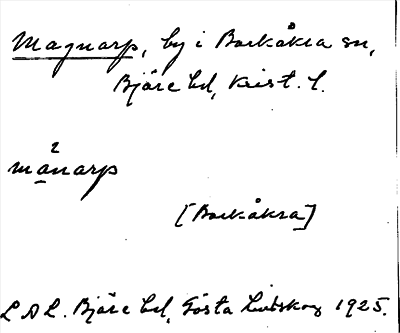 Magnarp, by i Barkåkra sn,
Bjäre hd, Krist. l.
2
månarp
[Barkåkra]
L A L. Bjäre hd, Gösta Lidskog 1925.